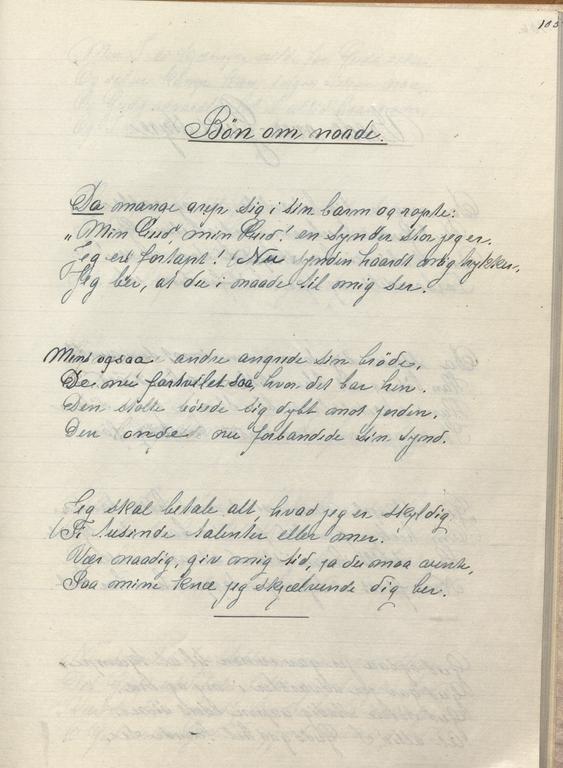 103
Bön om naade.
Da mange grep sig i sin barm og ropte:
"Min Gud" min Gud! en synder stor jeg er.
Jeg er fortapt! Nu synden haardt mig trykker,
Jeg ber, at du i naade til mig ser.
Mens ogsaa andre angrede sin bröde,
De nu fortvilet saa, hvor det bar hen.
Den stolte böiede sig dybt mot jorden,
Den onde nu forbandede sin synd.
Jeg skal betale alt, hvad jeg er skyldig
Ti tusinde talenter eller mer.
Vær naadig, giv mig tid, ja du maa vente,
Paa mine knæ jeg skjælvende dig ber.